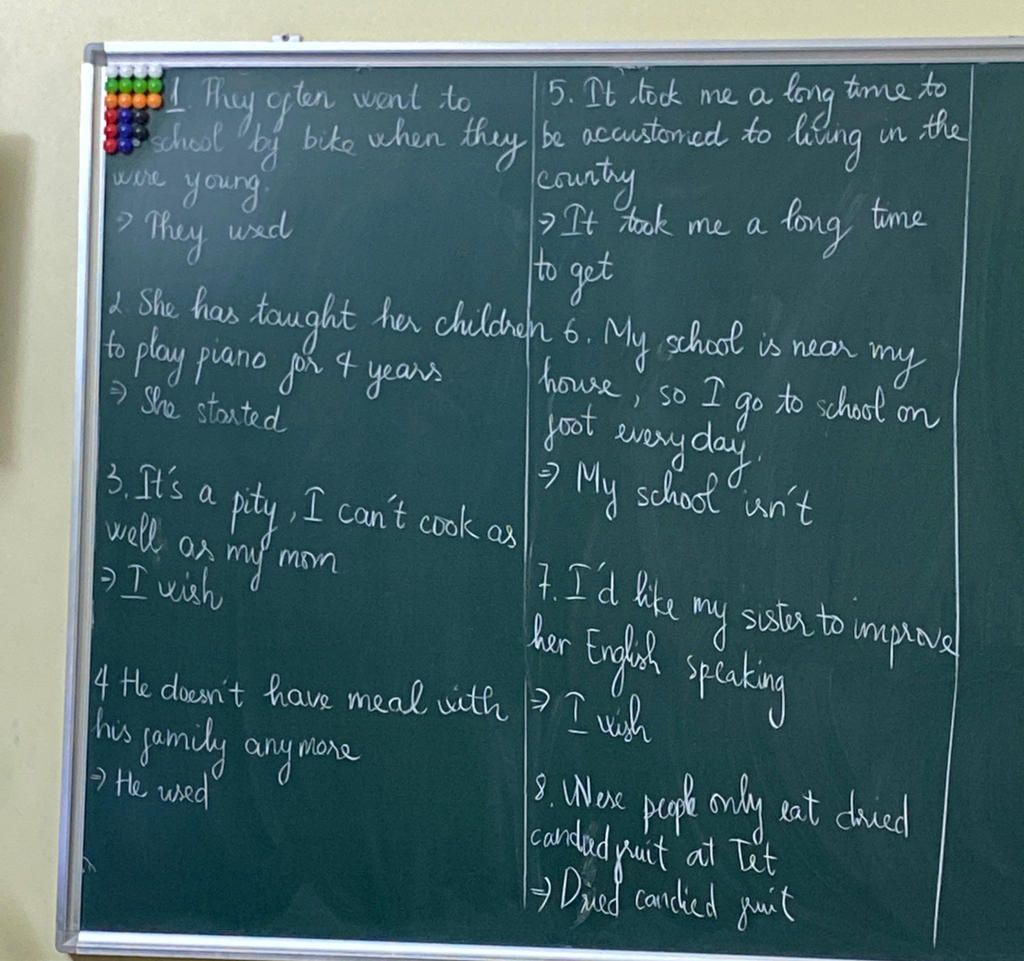 1 They often went to
school by bike when they
were young.
⇒ They used
2. She has taught her children
to play piano for 4 years
⇒ She started
3. It's a pity, I can't cook as
well as my mom
⇒ I wish
4 He doesn't have meal with
his family anymore
⇒ He used
5. It took me a long time to
be accustomed to living in the
country
⇒ It took me a long time
to get
6. My school is near my
house, so I go to school on
foot everyday.
⇒ My school isn't
7. I'd like my sister to improve
her English speaking
⇒ I wish
8. people only eat dried
candied fruit at Tet
⇒ Dried candied fruit